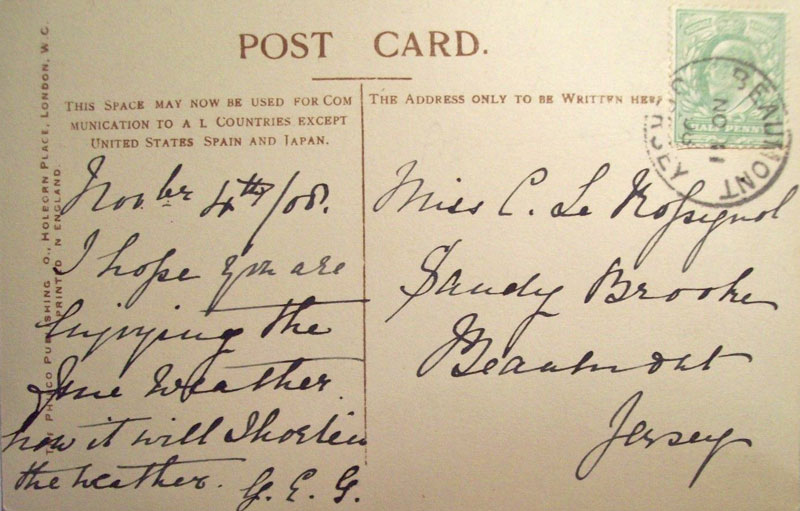 POST CARD.
THIS SPACE MAY NOW BE USED FOR COM
MUNICATION TO A L COUNTRIES EXCEPT
UNITED STATES SPAIN AND JAPAN.
THE ADDRESS ONLY TO BE WRITTEN HERE
HALFPENNY
BEAUMONT
JERSEY
NO
Novber 4th/08.
I hope you are
Enjoying the
fine Weather.
how it will Shorten
the weather. G. E. G.
Miss C. Le Rossignol
Sandy Brooke
Beaumont
Jersey
THE PHOTCO PUBLISHING O., HOLBORN PLACE, LONDON, W.C.
PRINTED N ENGLAND.